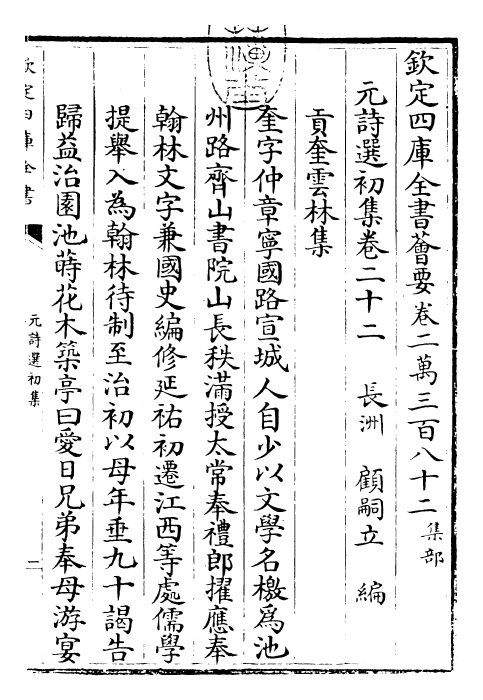 欽定四庫全書薈要卷二萬三百八十二 集部
元詩選初集卷二十二 長洲 顧嗣立 編
貢奎雲林集
奎字仲章寧國路宣城人自少以文學名檄為池
州路齊山書院山長秩滿授太常奉禮郎擢應奉
翰林文字兼國史編修延祐初遷江西等處儒學
提舉入為翰林待制至治初以母年垂九十謁告
歸益治園池蒔花木築亭曰愛日兄弟奉母游宴
欽定四庫全書
元詩選初集
二